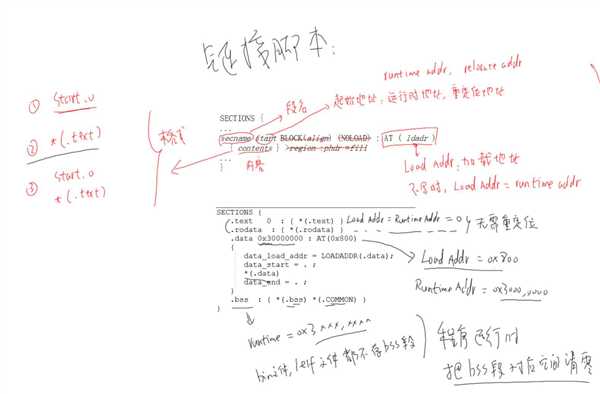 链接脚本:
runtime addr, relocate addr
起始地址: 运行时地址, 重定位地址
段名
① start.o
② *(.text)
③ start.o
*(.text)
格式
SECTIONS {
...
secname start BLOCK(align) (NOLOAD) : AT ( ldadr )
{ contents } >region :phdr =fill
...
}
内容
Load Addr: 加载地址
不写时, Load Addr = runtime addr
SECTIONS {
.text 0 : { *(.text) } Load Addr = Runtime Addr = 0, 无需重定位
.rodata : { *(.rodata) }
.data 0x30000000 : AT(0x800)
{
data_load_addr = LOADADDR(.data);
data_start = . ;
*(.data)
data_end = . ;
}
.bss : { *(.bss) *(.COMMON) }
}
Load Addr = 0x800
Runtime Addr = 0x3000,0000
runtime = 0x3xxx,xxxx
bin文件, elf文件都不存bss段
程序运行时
把bss段对应空间清零